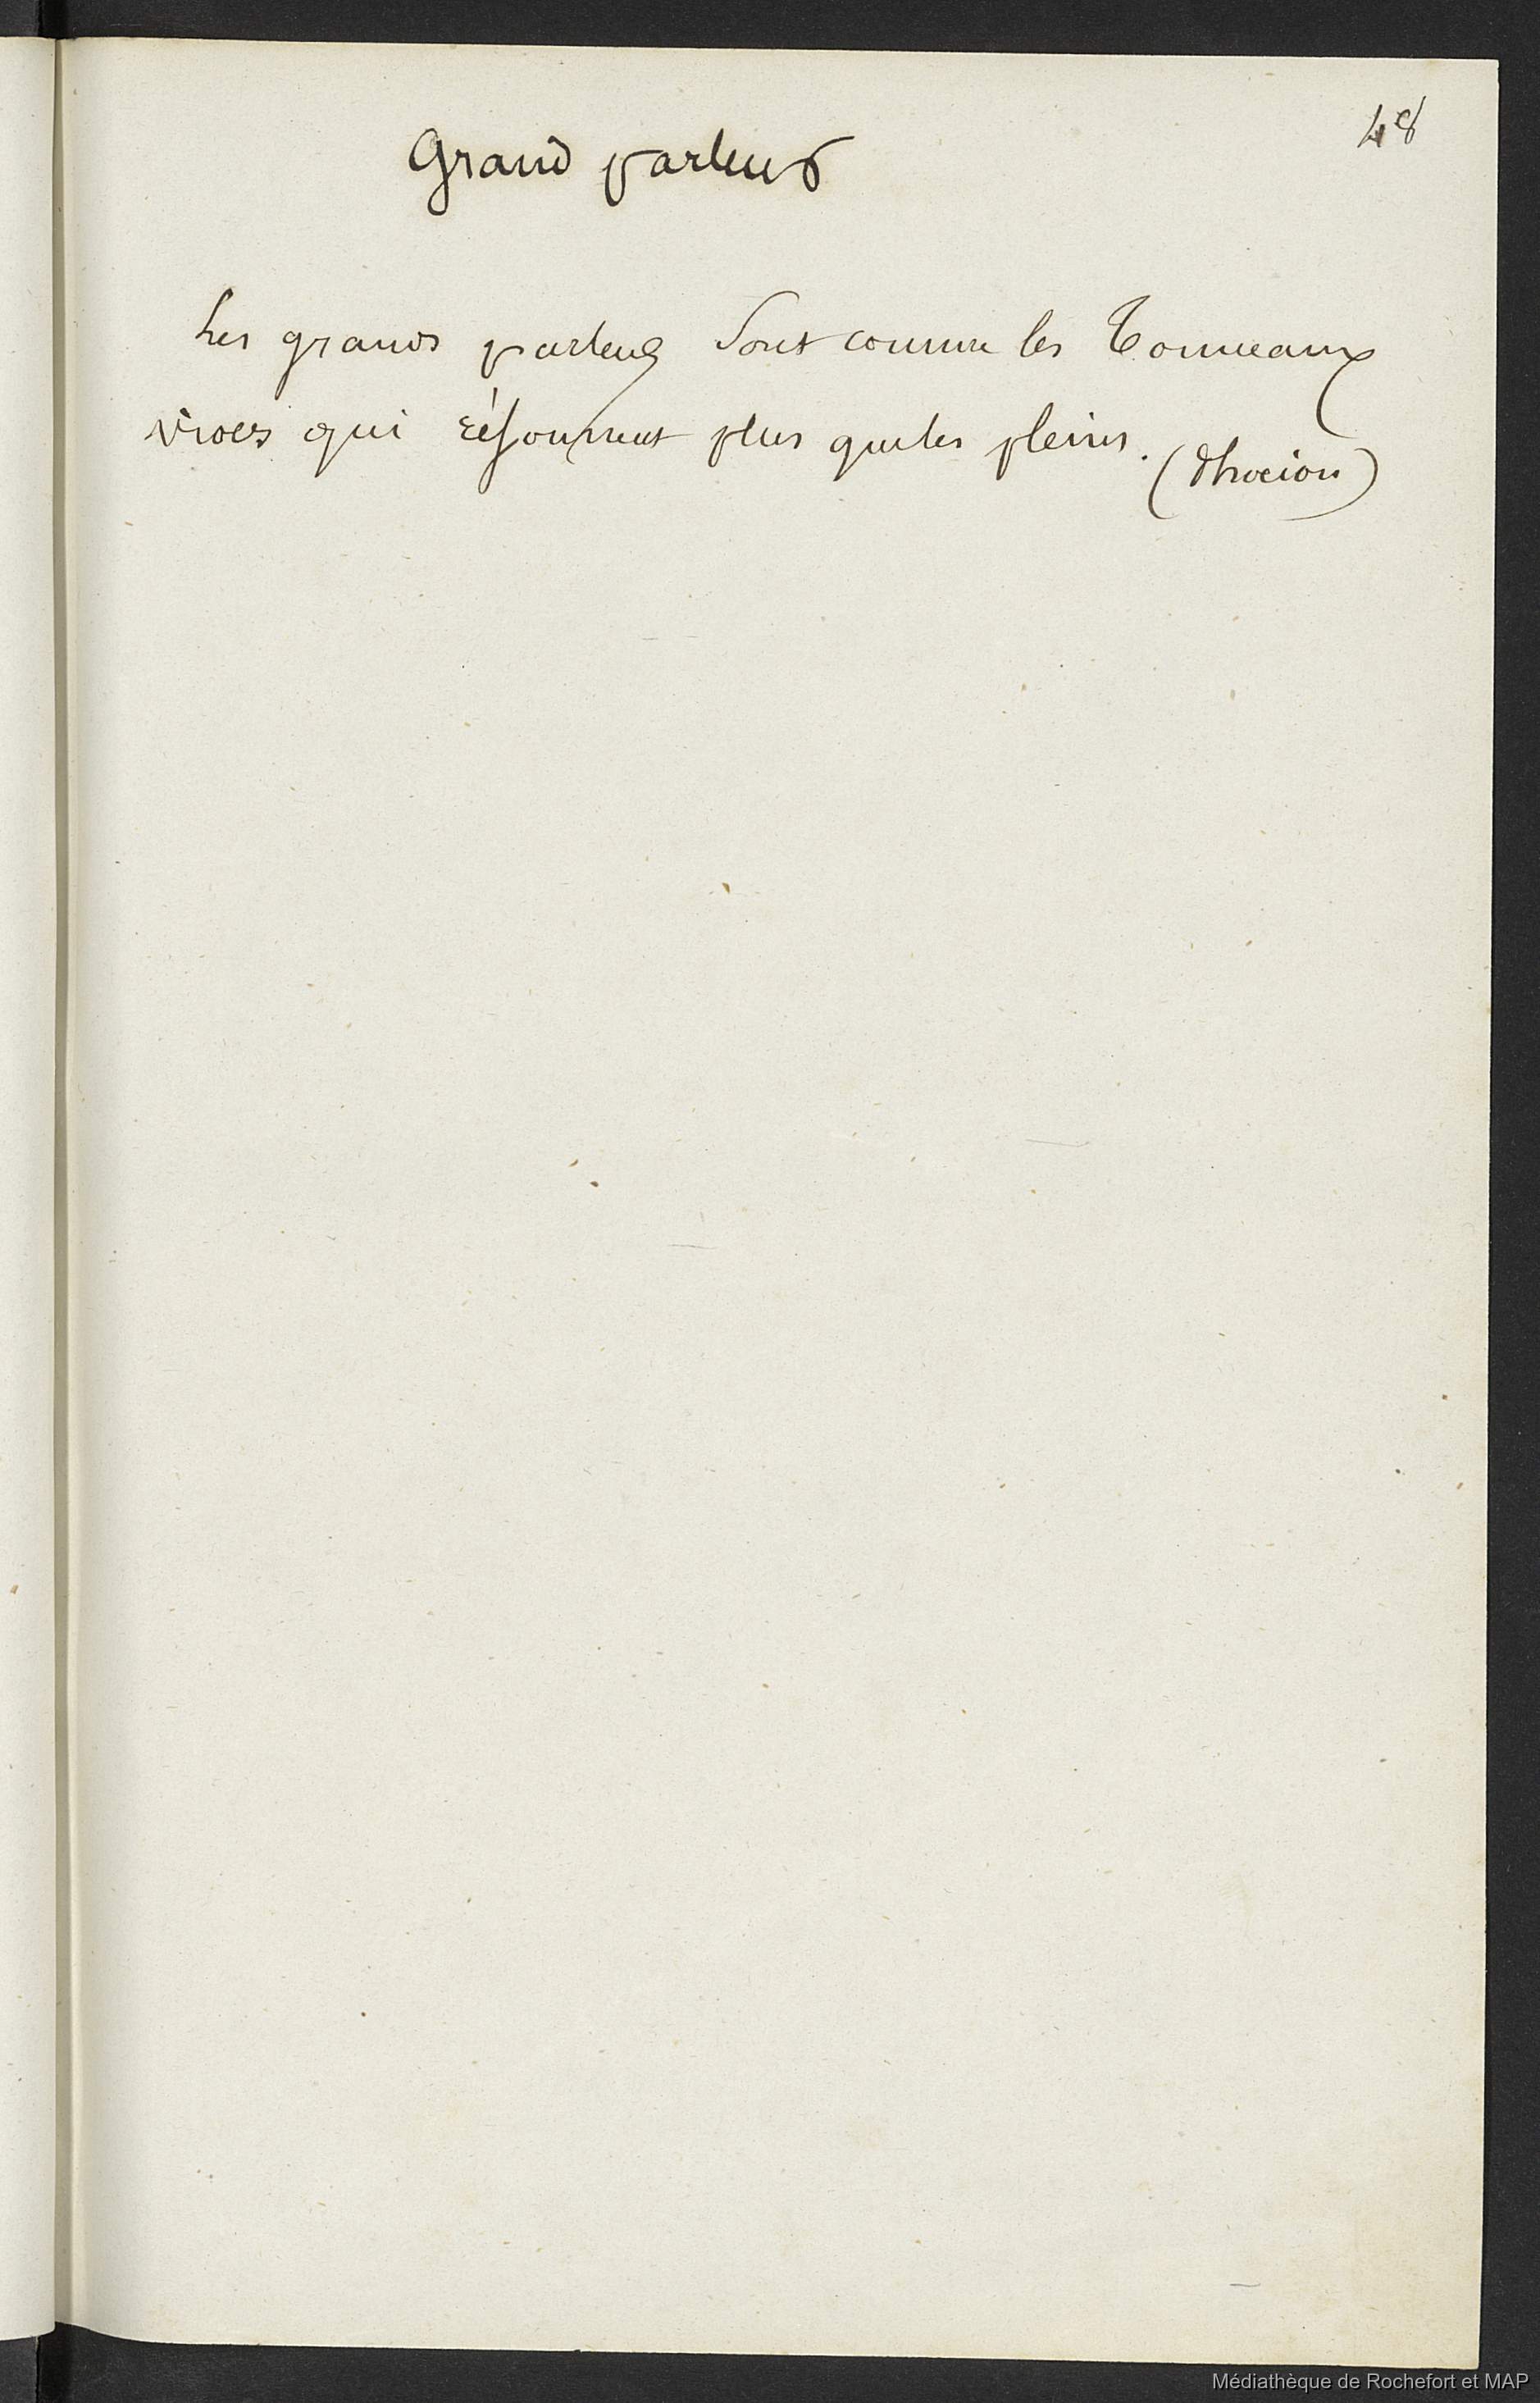 48
Grand parleur
Les grands parleurs sont comme les Tonneaux
vides qui résonnent plus que les pleins.
(Phocion)
Médiathèque de Rochefort et MAP